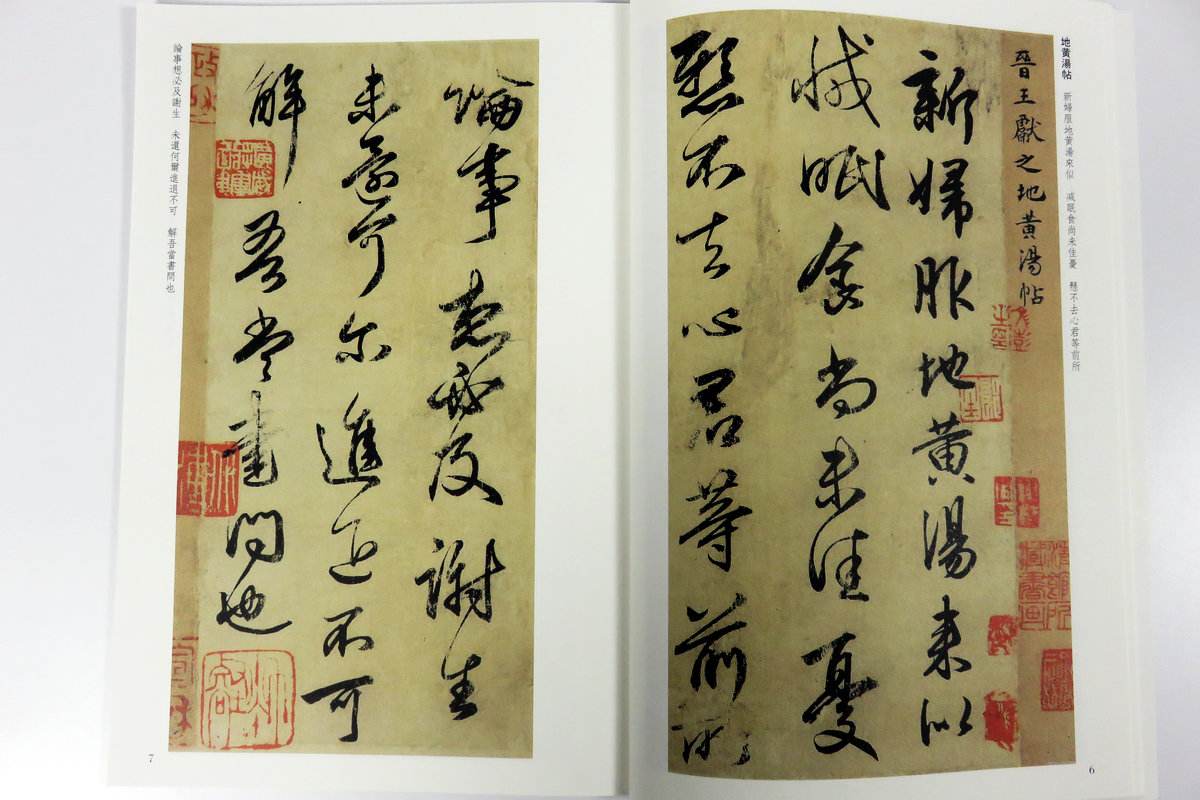 地黄湯帖 新婦服地黄湯來似 减眠食尚未佳憂 懸不去心君等前所
晉王獻之地黃湯帖
新婦服地黄湯来似
減眠食尚未佳憂
懸不去心君等前所
6
論事想必及謝生
未還何尔進退不可
解吾當書問也
論事想必及謝生 未還何爾進退不可 解吾當書問也
7